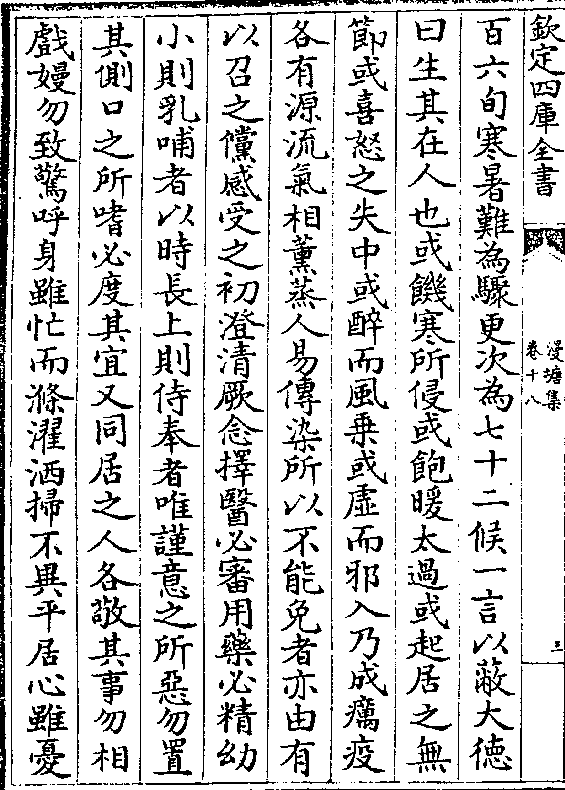 欽定四庫全書
漫塘集
卷十八
三
百六旬寒暑難為驟更次為七十二候一言以蔽大徳
曰生其在人也或饑寒所侵或飽暖太過或起居之無
節或喜怒之失中或醉而風乗或虛而邪入乃成癘疫
各有源流氣相薰蒸人易傳染所以不能免者亦由有
以召之儻感受之初澄清厥念擇醫必審用藥必精幼
小則乳哺者以時長上則侍奉者唯謹意之所惡勿置
其側口之所嗜必度其宜又同居之人各敬其事勿相
戲嫚勿致驚呼身雖忙而滌濯洒掃不異平居心雖憂